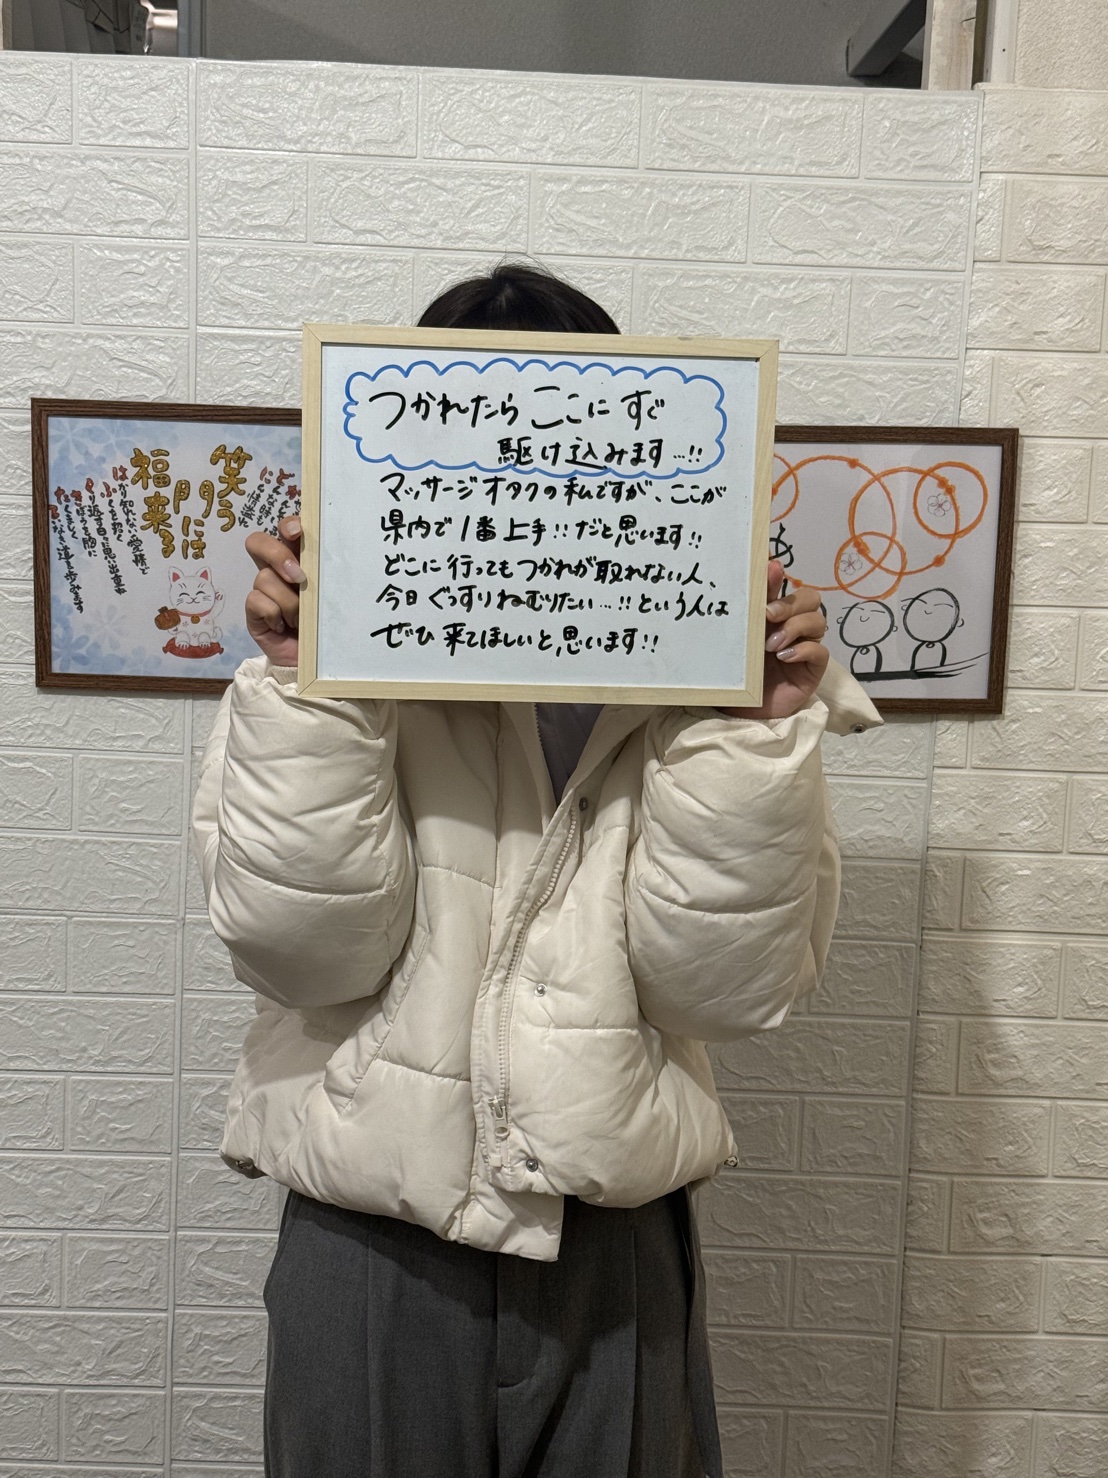 つかれたら ここに すぐ
駆け込みます…!!
マッサージオタクの私ですが、ここが
県内で1番上手!!だと思います!!
どこに行ってもつかれが取れない人、
今日ぐっすりねむりたい…!!という人は
ぜひ来てほしいと、思います!!
笑う
門には
福来る
はかり知れない愛情で